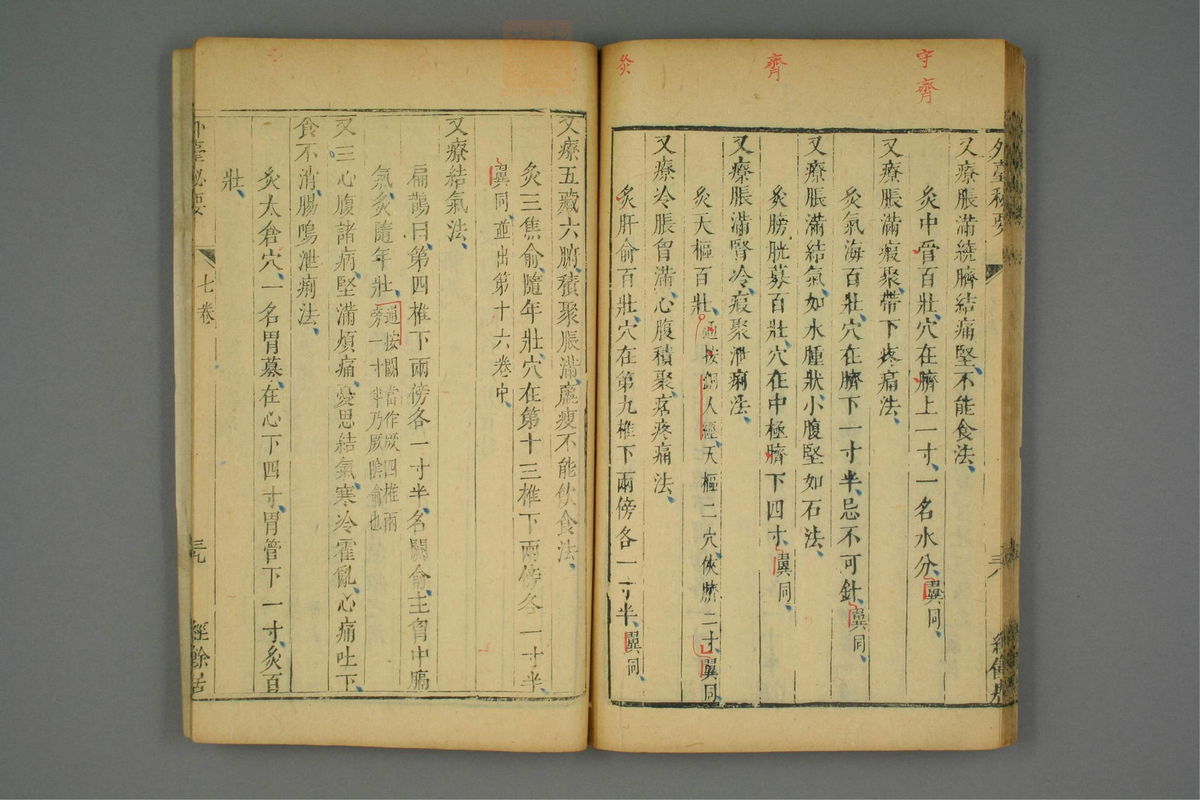 守齊
齊
灸
外臺秘要
三八
又療脹滿繞臍結痛堅不能食法
灸中脘百壯穴在臍上一寸一名水分翼同
又療脹滿瘕聚帶下疼痛法
灸氣海百壯穴在臍下一寸半忌不可針翼同
又療脹滿結氣如水腫狀小腹堅如石法
灸膀胱募百壯穴在中極臍下四寸翼同
又療脹滿腎冷瘕聚泄痢法
灸天樞百壯通按銅人經天樞二穴俠臍二寸翼同
又療冷脹胷滿心腹積聚痞疼痛法
灸肝俞百壯穴在第九椎下兩傍各一寸半翼同
又療五藏六腑積聚脹滿羸瘦不能飲食法
灸三焦俞隨年壯穴在第十三椎下兩傍各一寸半
翼同並出第十六卷中
又療結氣法
扁鵲曰第四椎下兩傍各一寸半名闕俞主胷中膈
氣灸隨年壯
通按闕當作厥四椎兩
旁一寸半乃厥陰俞也
又主心腹諸病堅滿煩痛憂思結氣寒冷霍亂心痛吐下
食不消腸鳴泄痢法
灸太倉穴一名胃募在心下四寸胃管下一寸灸百
壯
外臺秘要
七卷
三九
經餘居